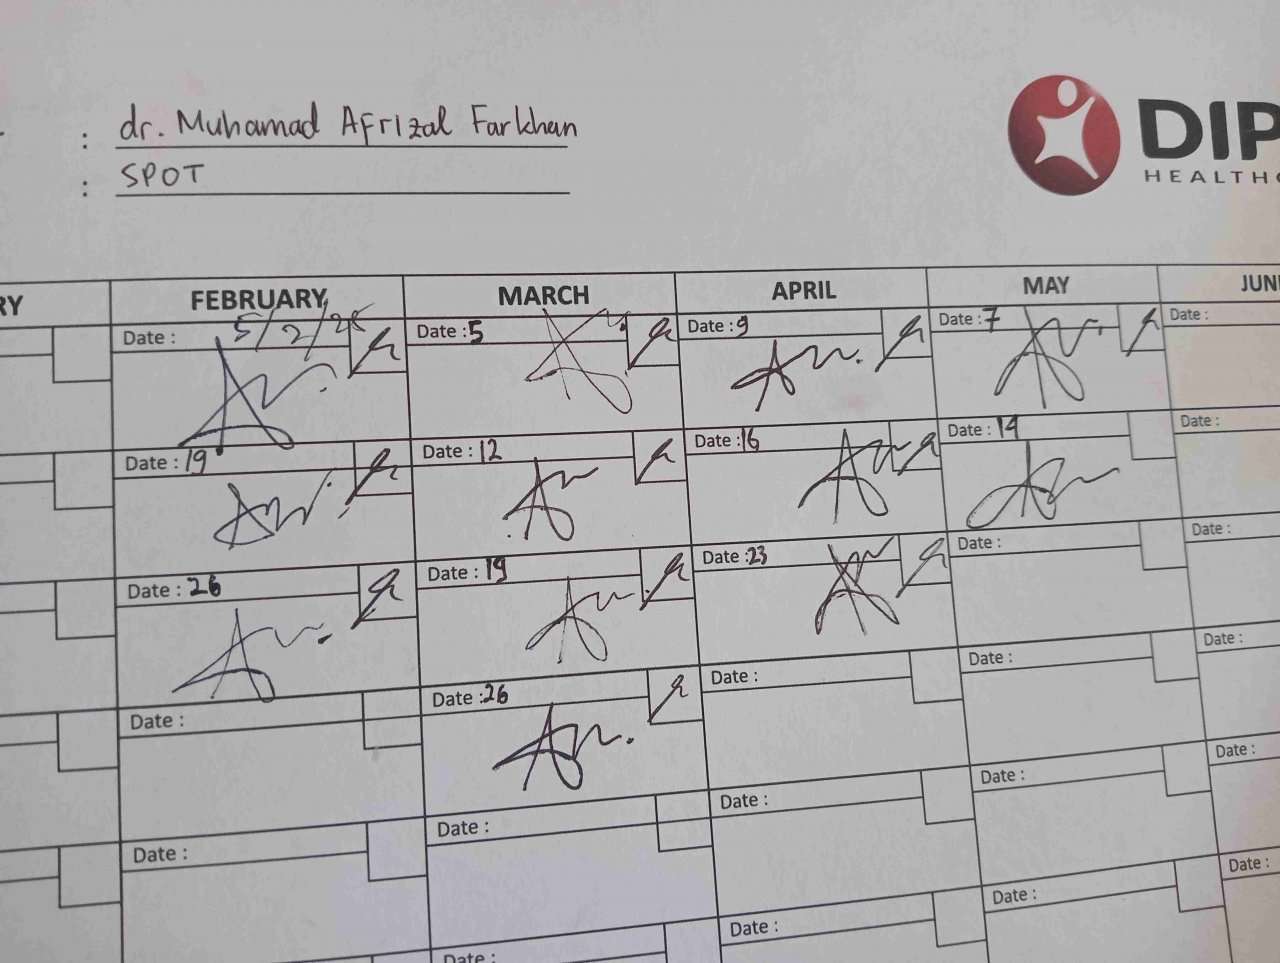 : dr. Muhamad Afrizal Farkhan
: SPOT
DIP
HEALTHC
RY FEBRUARY MARCH APRIL MAY JUNE
Date : 5/2/25 Date : 5 Date : 9 Date : 7 Date :
Date : 19 Date : 12 Date : 16 Date : 14 Date :
Date : 26 Date : 19 Date : 23 Date : Date :
Date : Date : 26 Date : Date : Date :
Date : Date : Date : Date : Date :
Date : Date : Date : Date :